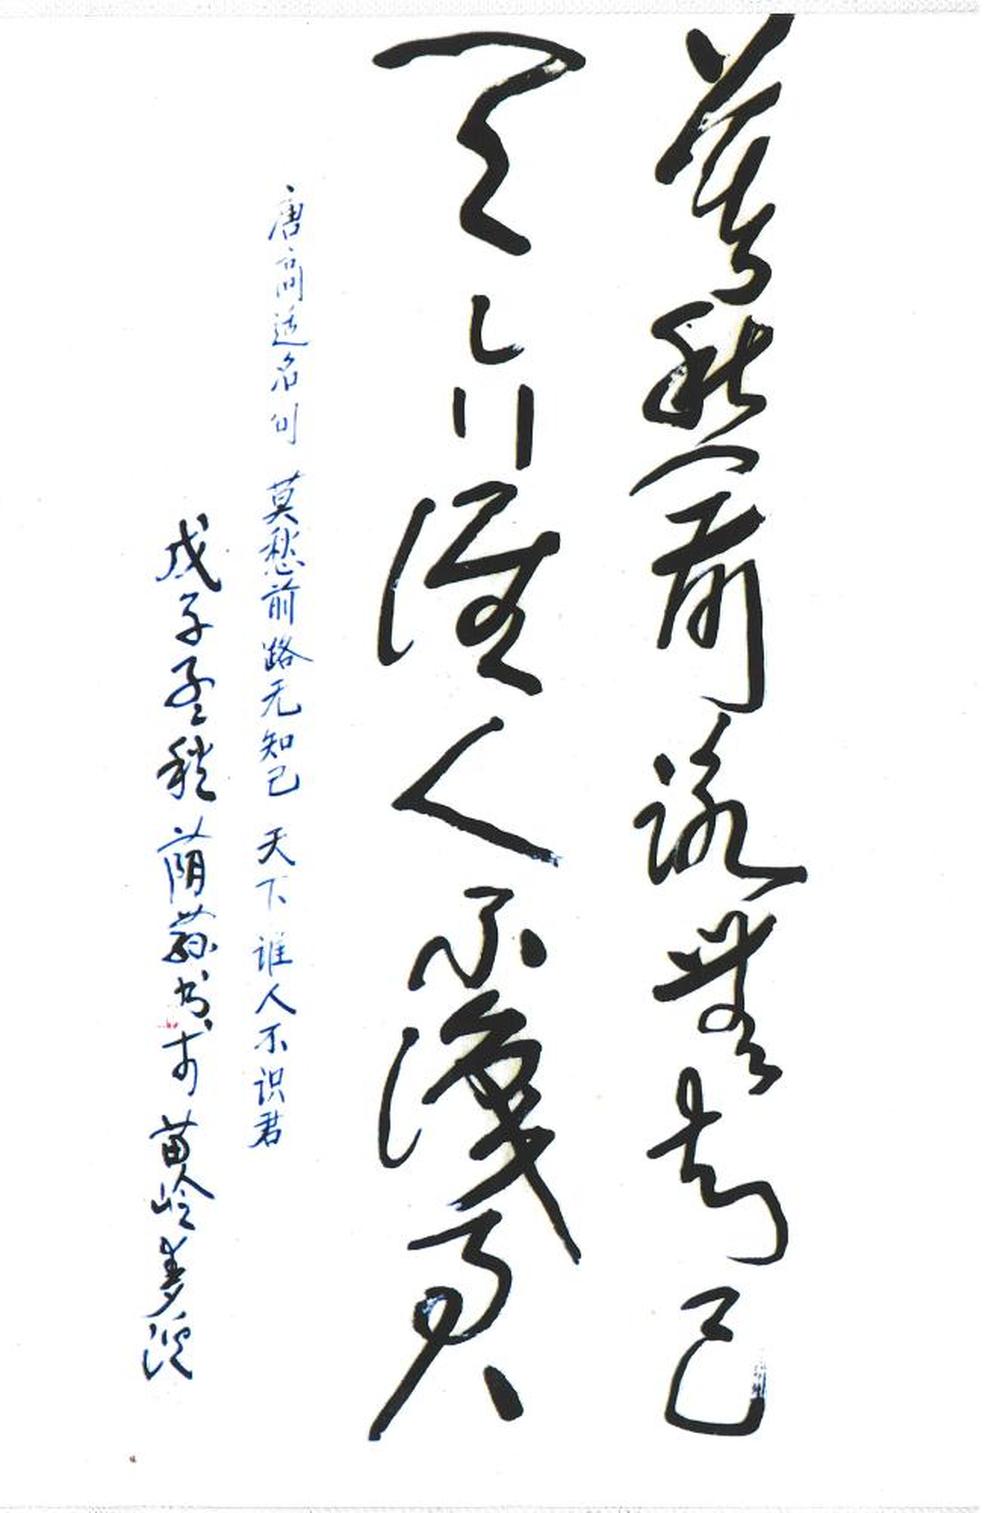 莫愁前路無知己
天下誰人不識君
唐高适名句 莫愁前路无知己 天下谁人不识君
戊子孟 荫荪书于苗岭